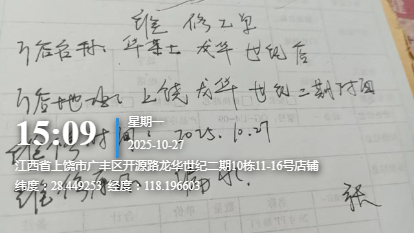 维修工单
门店名称：华莱士龙华世纪店
门店地址：上饶龙华世纪二期对面
维修时间：2025.10.27
15:09
星期一
2025-10-27
江西省上饶市广丰区开源路龙华世纪二期10栋11-16号店铺
纬度：28.449253 经度：118.196603
维修
张